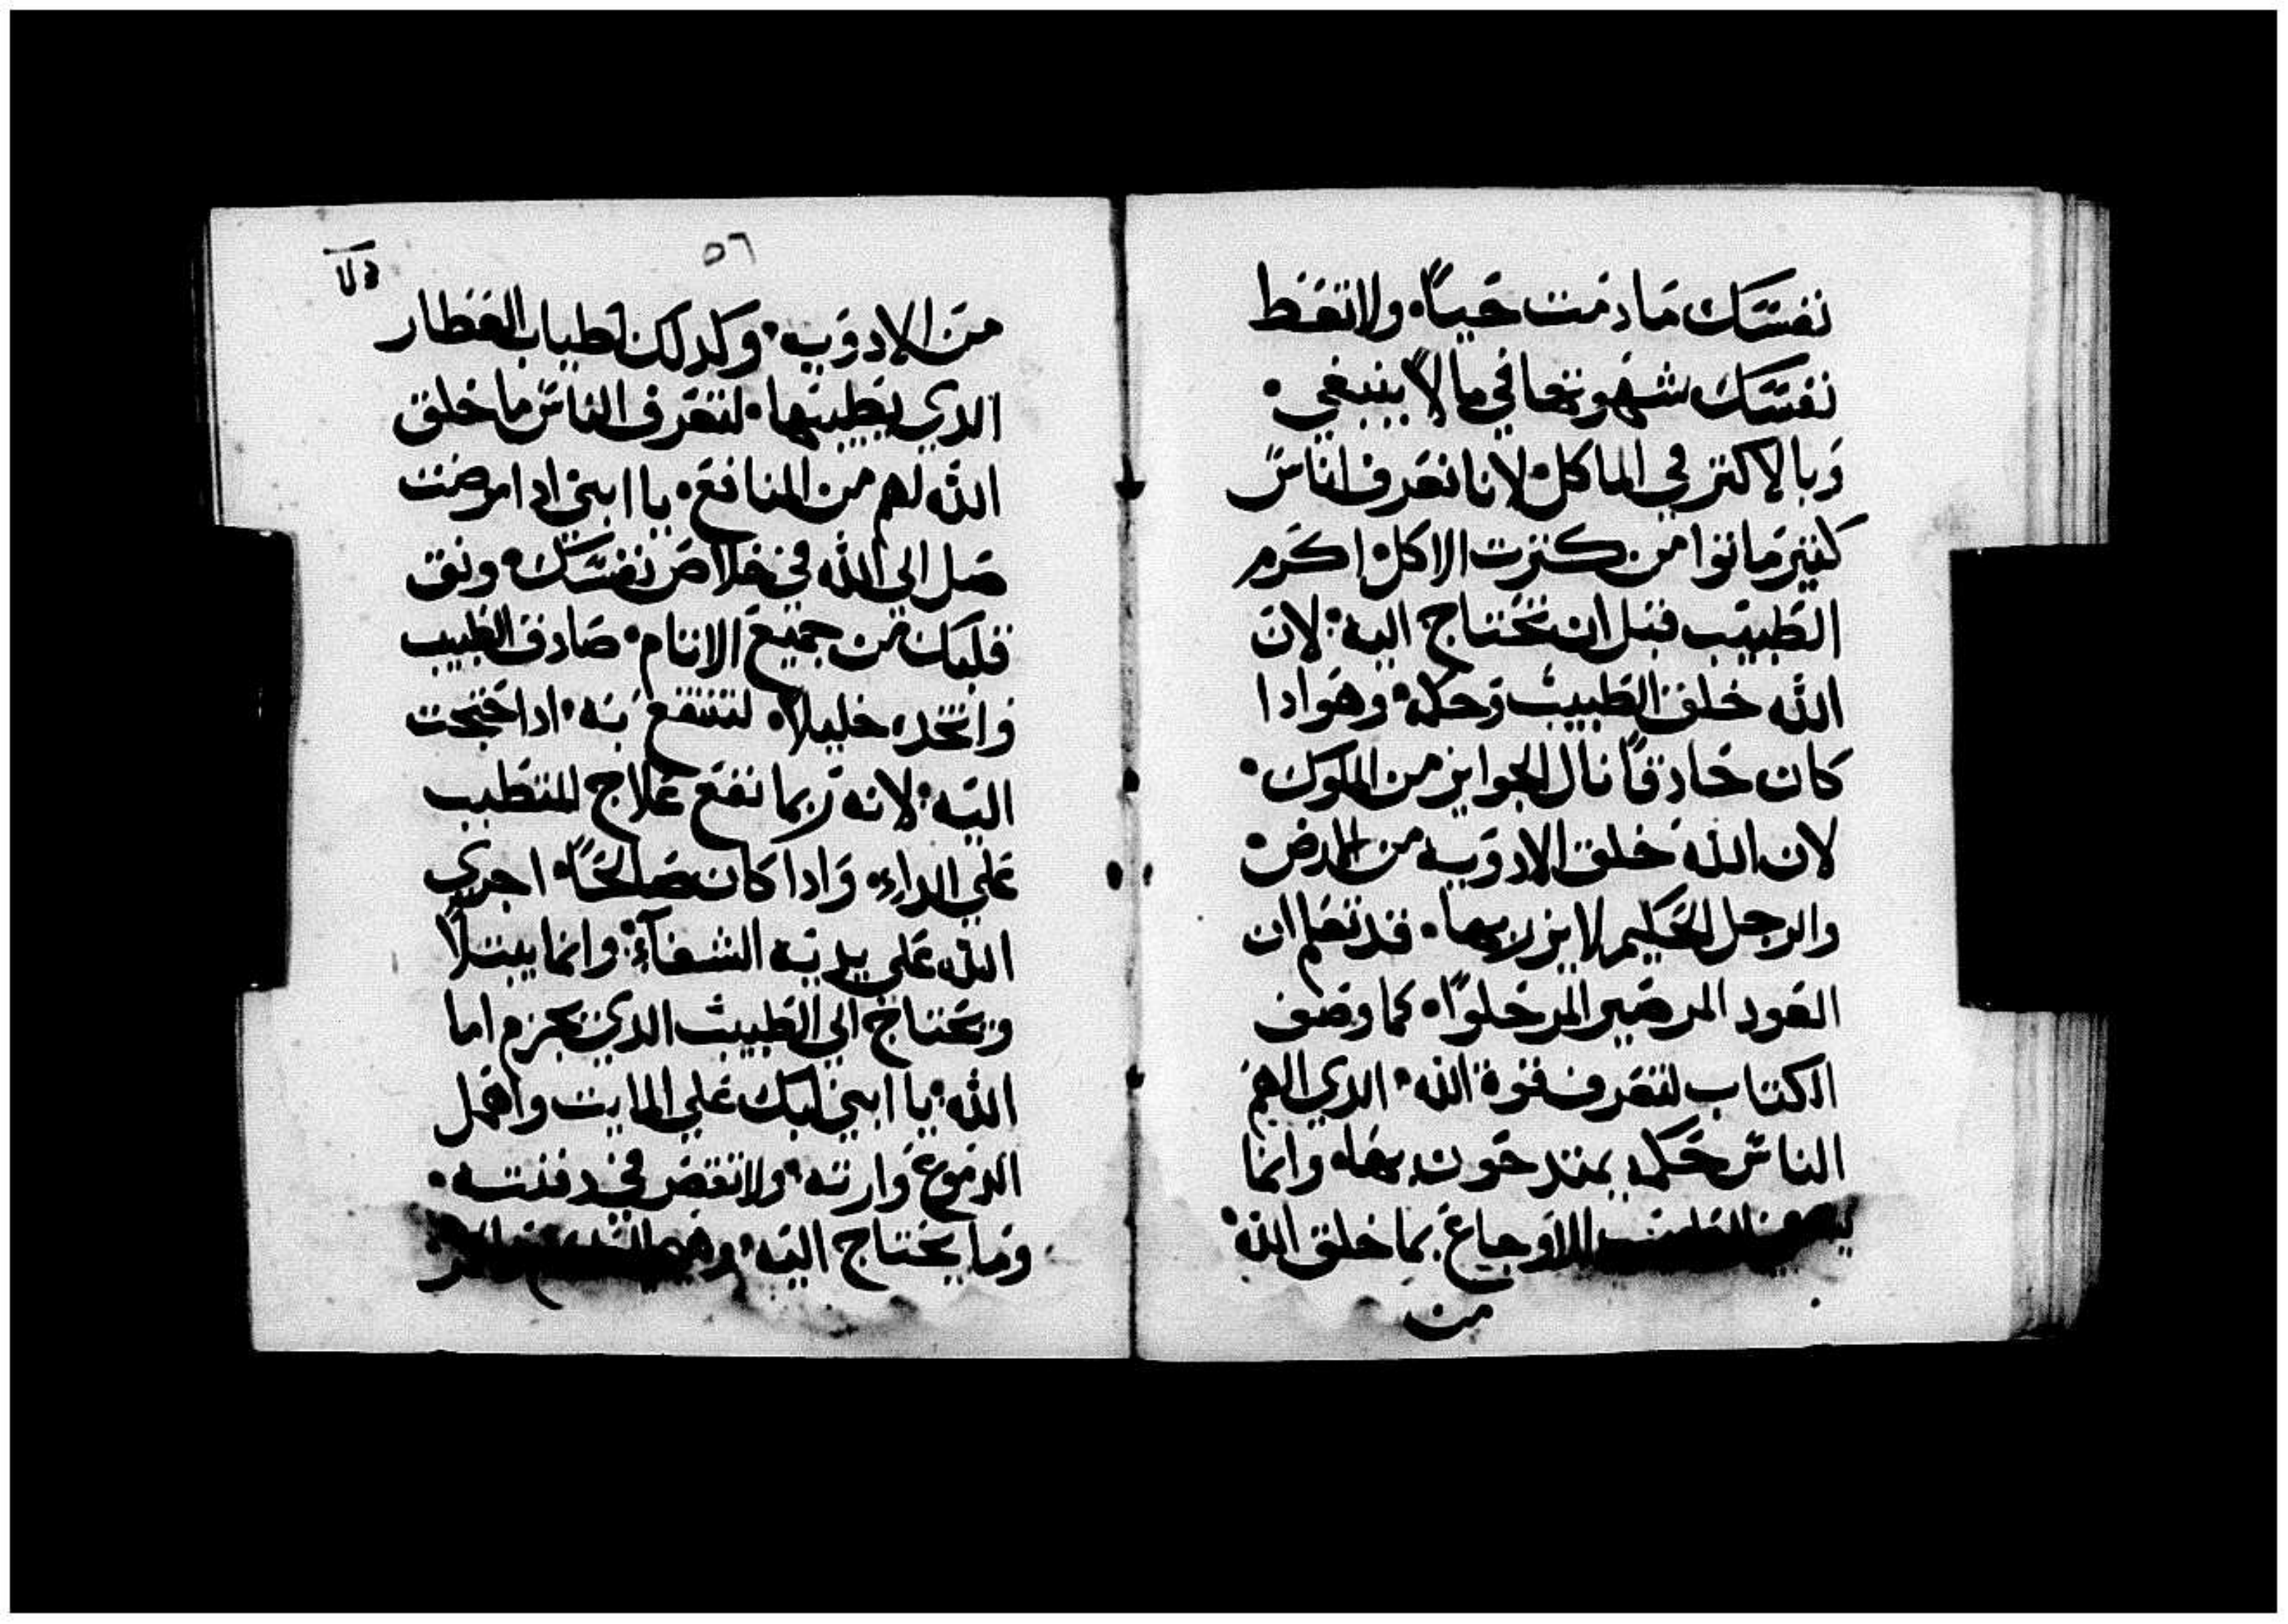 نفسك ما دمت حيا ولا تعط
نفسك شهوتها في ما لا ينبغي
وبالاكتر في الماكل لانا نعرف اناس
كتير ماتوا من كترت الاكل اكرم
الطبيب قبل ان تحتاج اليه لان
الله خلق الطبيب وحكمه وهو ادا
كان حادقا نال الجوايز من الملوك
لان الله خلق الادويه من الارض
والرجل الحكيم لا يزريها قد تعلم ان
العود المر صير المر حلوا كما وصف
الكتاب لتعرف قوة الله الدي الهم
الناس حكمه يمتدحون بها وانما
الطبيب الاوجاع بما خلق الله
من
٥٦
من الادويه وكدلك اطياب العطار
الدي يطيبها لتعرف الناس ما خلق
الله لهم من المنافع يا ابني ادا مرضت
صل الى الله في خلاص نفسك ونق
قلبك من جميع الاتام صادق الطبيب
واتخده خليلا لتنتفع به ادا احتجت
اليه لانه ربما نفع علاج المتطبب
علي الداء وادا كان صالحا اجري
الله علي يديه الشفآء وانما يبتلا
ويحتاج الي الطبيب الدي يجرم اما
الله يا ابني ابك علي المايت واهمل
الدموع وارته ولا تقصر في دفنته
وما يحتاج اليه